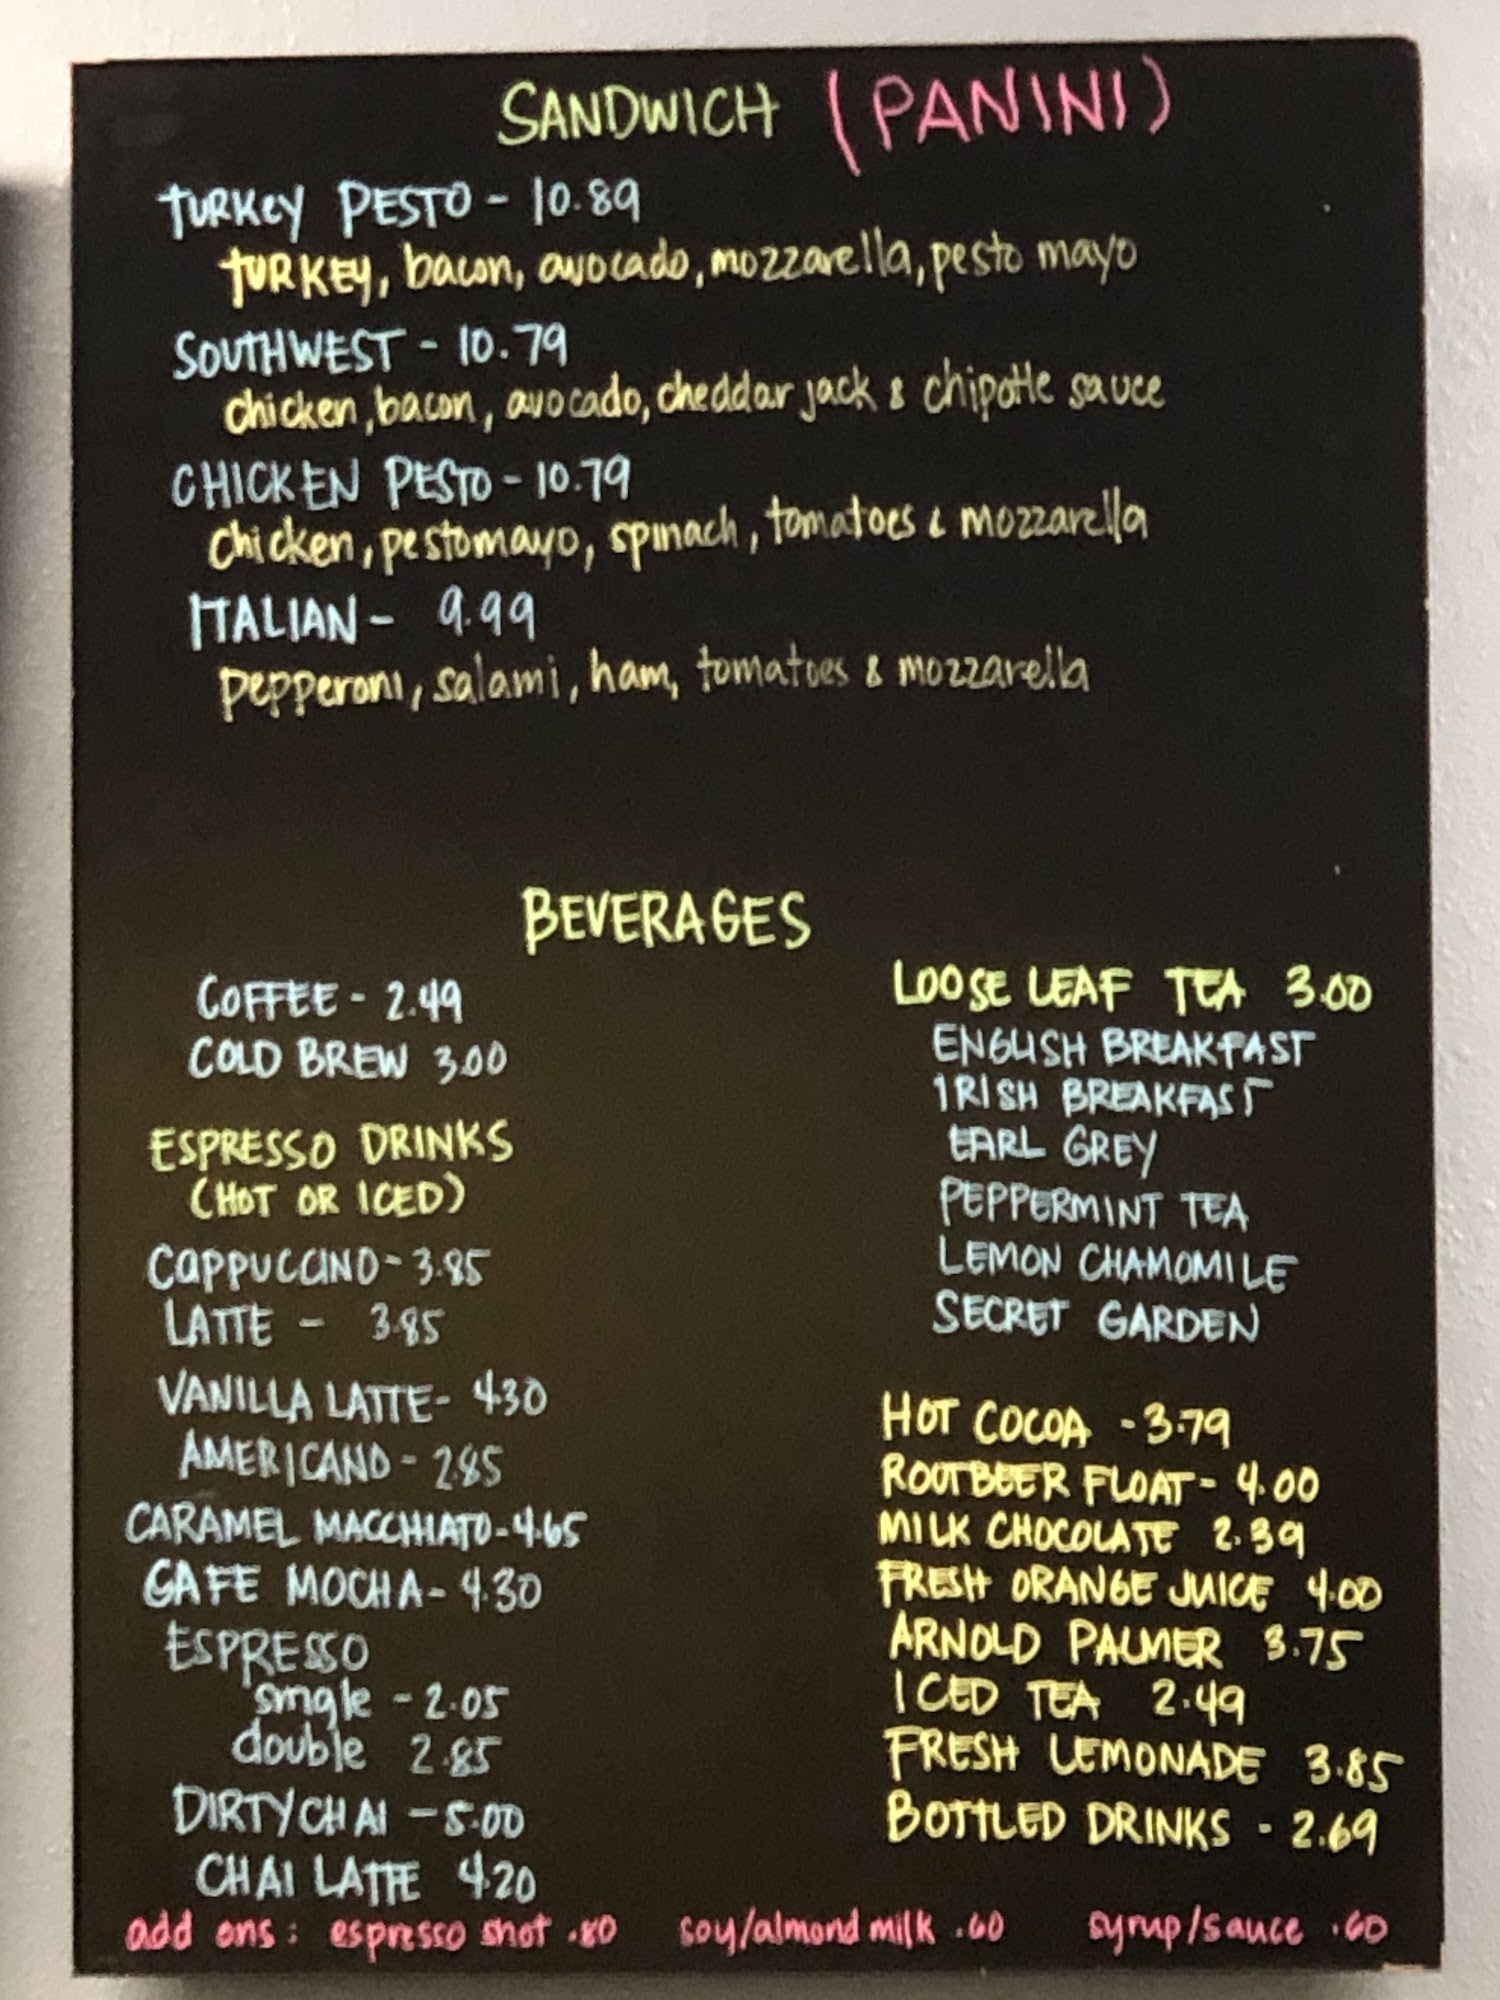 SANDWICH (PANINI)
TURKEY PESTO - 10.89
TURKEY, bacon, avocado, mozzarella, pesto mayo
SOUTHWEST - 10.79
chicken, bacon, avocado, cheddar jack & chipotle sauce
CHICKEN PESTO - 10.79
chicken, pestomayo, spinach, tomatoes & mozzarella
ITALIAN - 9.99
pepperoni, salami, ham, tomatoes & mozzarella
BEVERAGES
COFFEE - 2.49
COLD BREW 3.00
ESPRESSO DRINKS
(HOT OR ICED)
CAPPUCCINO - 3.85
LATTE - 3.85
VANILLA LATTE - 4.30
AMERICANO - 2.85
CARAMEL MACCHIATO - 4.65
CAFE MOCHA - 4.30
ESPRESSO
single - 2.05
double 2.85
DIRTY CHAI - 5.00
CHAI LATTE 4.20
LOOSE LEAF TEA 3.00
ENGLISH BREAKFAST
IRISH BREAKFAST
EARL GREY
PEPPERMINT TEA
LEMON CHAMOMILE
SECRET GARDEN
HOT COCOA - 3.79
ROOTBEER FLOAT - 4.00
MILK CHOCOLATE 2.39
FRESH ORANGE JUICE 4.00
ARNOLD PALMER 3.75
ICED TEA 2.49
FRESH LEMONADE 3.85
BOTTLED DRINKS - 2.69
add ons: espresso shot .80 soy/almond milk .60 syrup/sauce .60